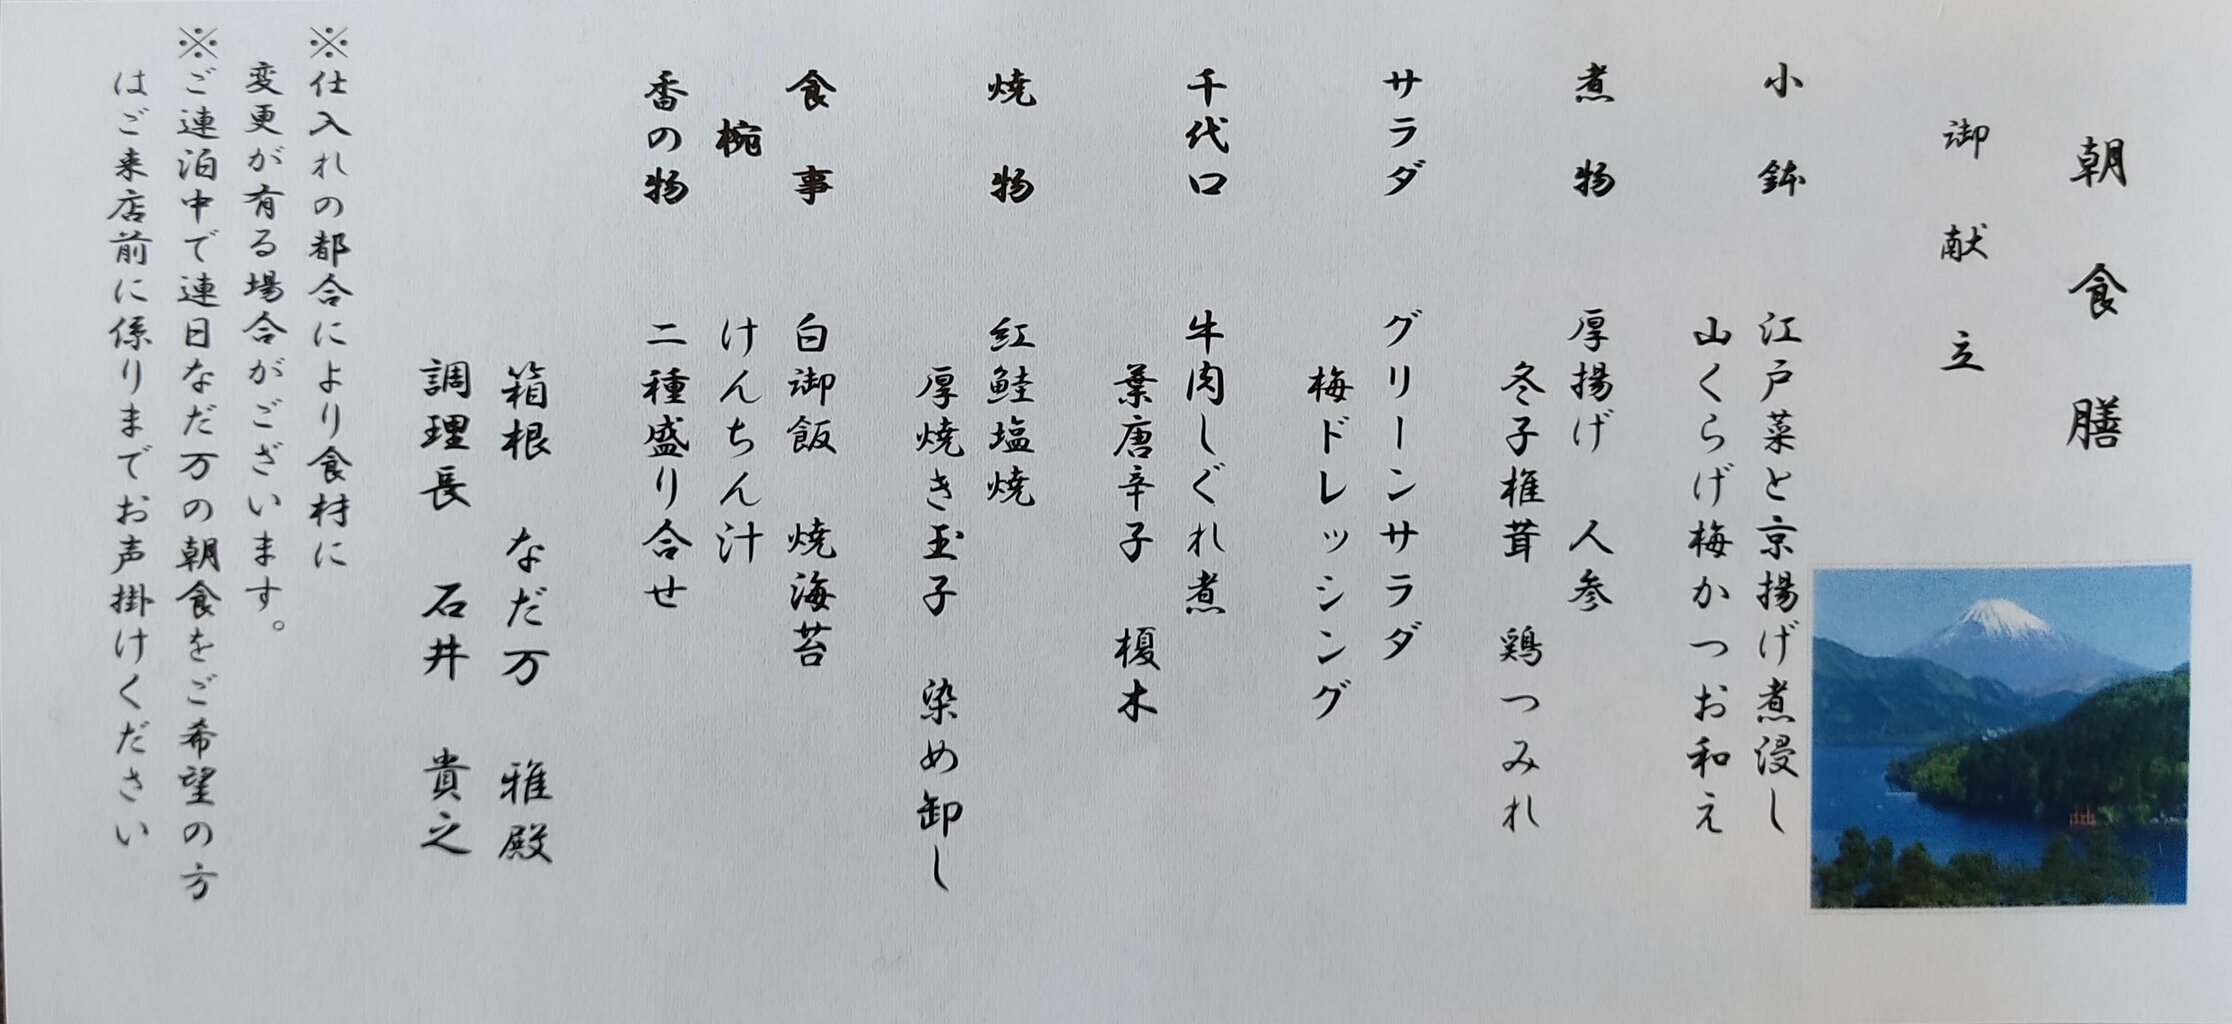 朝食膳
御献立
小鉢 江戸菜と京揚げ煮浸し
山くらげ梅かつお和え
煮物 厚揚げ 人参
冬子椎茸 鶏つみれ
サラダ グリーンサラダ
梅ドレッシング
千代口 牛肉しぐれ煮
葉唐辛子 榎木
焼物 紅鮭塩焼
厚焼き玉子 染め卸し
食事 白御飯 焼海苔
椀 けんちん汁
香の物 二種盛り合せ
箱根 なだ万 雅殿
調理長 石井 貴之
※仕入れの都合により食材に
変更が有る場合がございます。
※ご連泊中で連日なだ万の朝食をご希望の方
はご来店前に係りまでお声掛けください